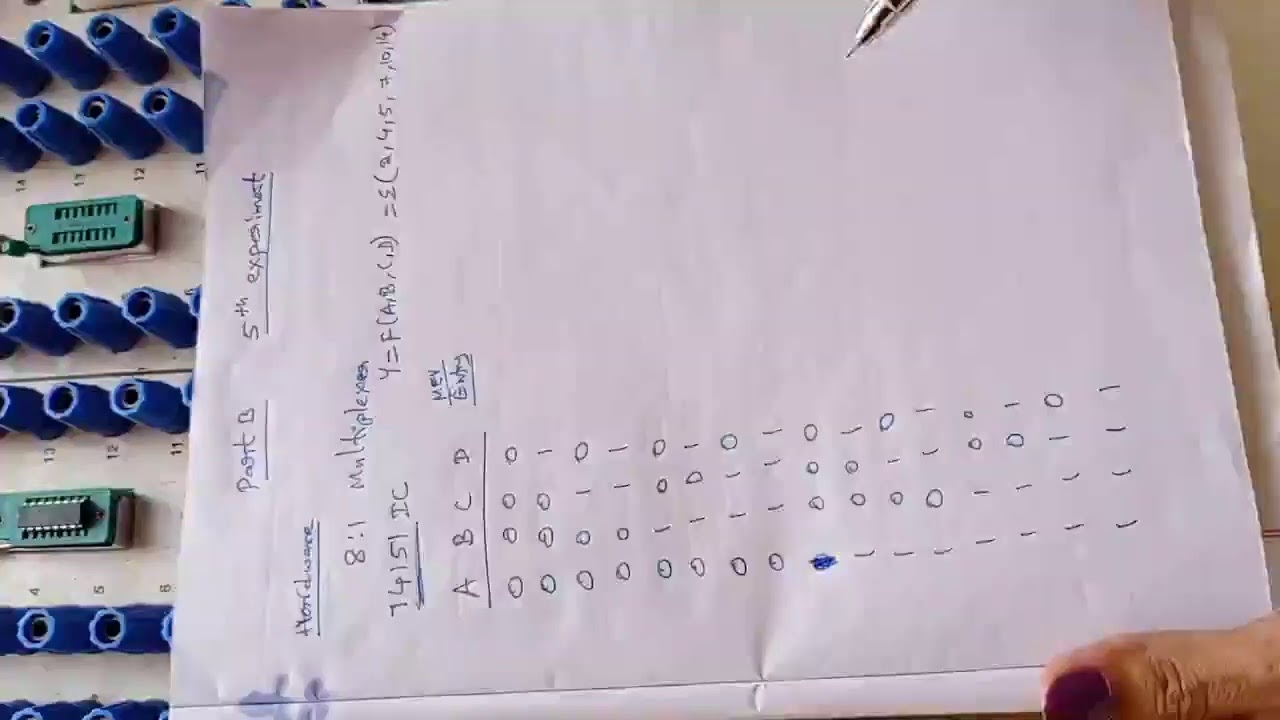 Part B 5th experiment
Hardware
8:1 Multiplexer
74151 IC Y=F(A,B,C,D) =Σ(2,4,5,7,10,14)
MEV
Entry
A B C D
0 0 0 0
0 0 0 1
0 0 1 0
0 0 1 1
0 1 0 0
0 1 0 1
0 1 1 0
0 1 1 1
0 0 0
1 0 0 1
1 0 1 0
1 0 1 1
1 1 0 0
1 1 0 1
1 1 1 0
1 1 1 1
14 13 12 11
13 12 11
4 5 6